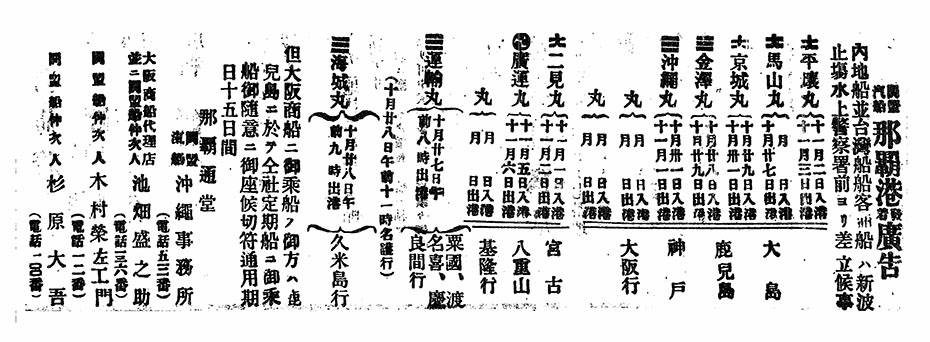 同盟汽船 那覇港發着廣告
内地船並台湾船船客艀船ハ新波
止場水上警察署前ヨリ差立候事
平壤丸 十一月二日入港 十一月三日出港
馬山丸 月 日入港 十月廿七日出港 大島
京城丸 十月廿九日入港 十月卅一日出港 鹿児島
金澤丸 十月廿八日入港 十月廿九日出港
沖繩丸 十月卅一日入港 十一月一日出港 神戸
丸 月 日入港 日出港
丸 月 日入港 日出港 大阪行
二見丸 十一月一日入港 十一月二日出港 宮古
廣運丸 十一月五日入港 十一月六日出港 八重山
丸 月 日入港 日出港 基隆行
運輸丸 十月廿七日午前八時出港 粟國、渡名喜、慶良間行
(十月廿八日午前十一時名護行)
海城丸 十月廿八日午前九時出港 久米島行
但大阪商船ニ御乘船ノ御方ハ鹿
児島ニ於テ仝社定期船ニ御乘
船御随意ニ御座候切符通用期
日十五日間
那覇通堂
同盟汽船 沖繩事務所
(電話五三番)
大阪商船代理店
並ニ同盟船仲次人 池畑盛之助
(電話一三六番)
同盟船仲次人 木村榮左工門
(電話一二番)
同盟船仲次人 杉原大吾
(電話一〇〇番)